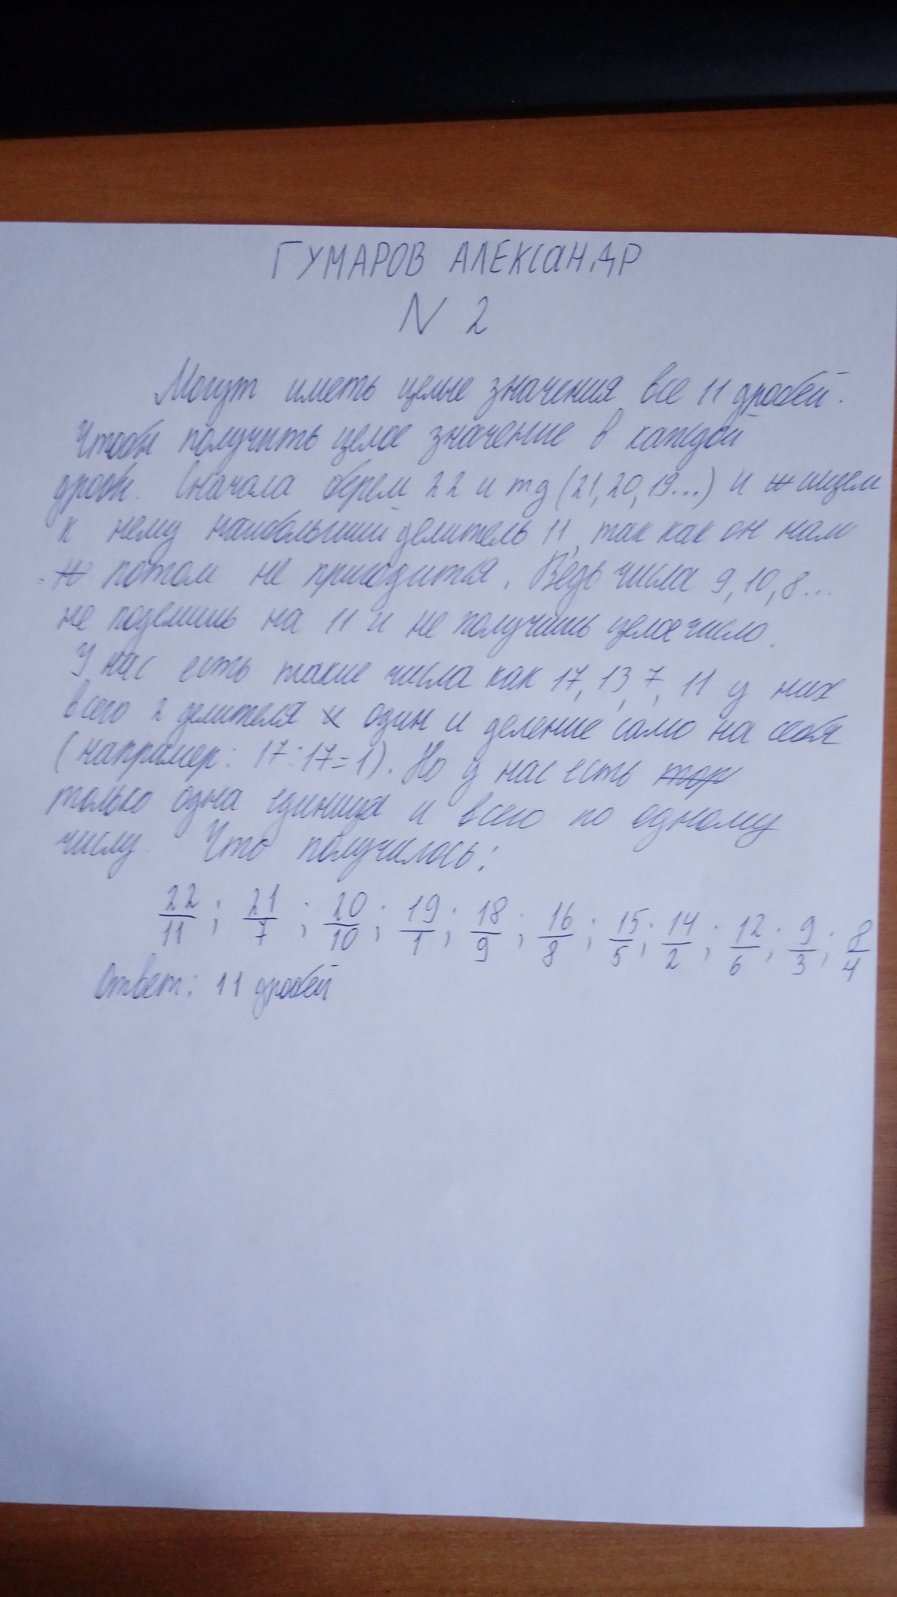 ГУМАРОВ АЛЕКСАНДР
N 2
Могут иметь целые значения все 11 дробей.
Чтобы получить целое значение в каждой
дроби. Сначала берем 22 и тд (21, 20, 19...) и ищем
к нему наибольший делитель 11, так как он нам
потом не пригодится. Ведь числа 9, 10, 8...
не поделишь на 11 и не получишь целое число.
У нас есть такие числа как 17, 13, 7, 11 у них
всего 2 делителя один и деление само на себя
(например: 17:17=1). Но у нас есть
только одна единица и всего по одному
числу. Что получилось:
22/11; 21/7; 20/10; 19/1; 18/9; 16/8; 15/5; 14/2; 12/6; 9/3; 8/4
Ответ: 11 дробей